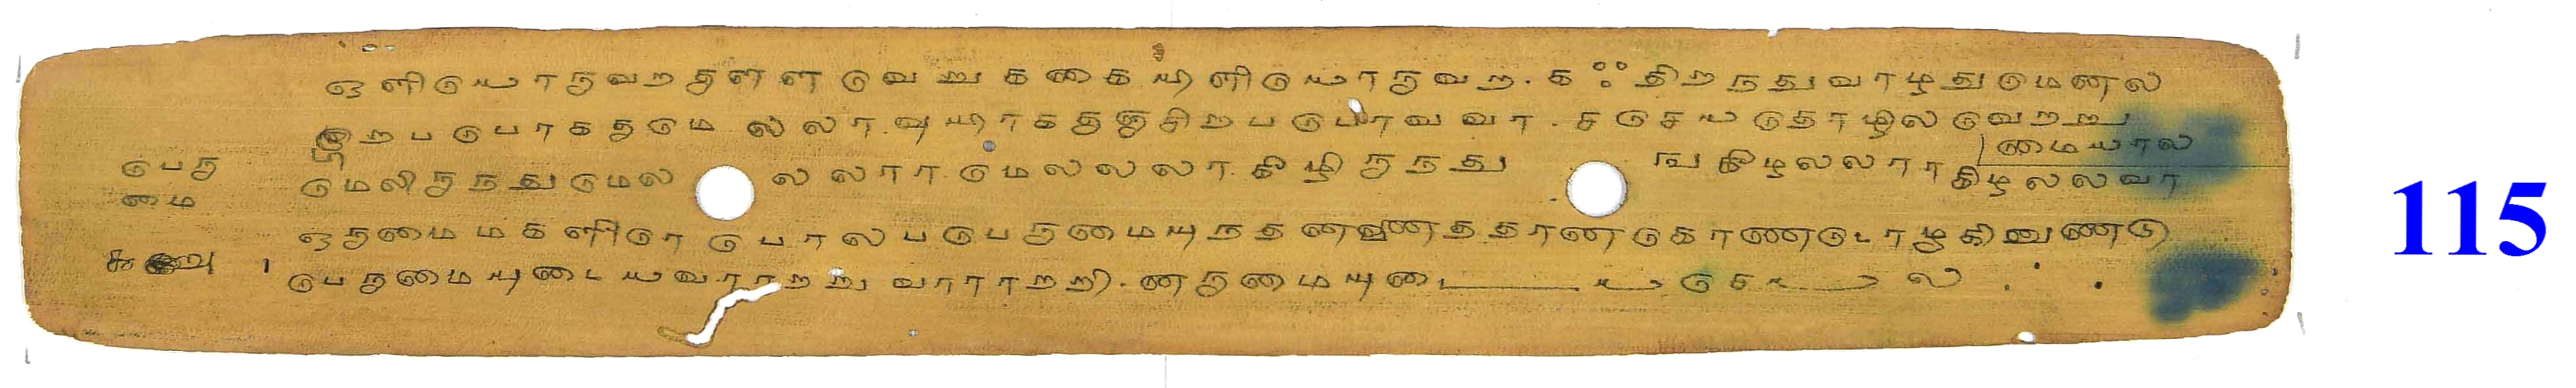 ஒளியொருவறகுளள வெறுககை யிளியொருவற கஃதிறநது வாழதுமெனல
பிறபபொககுமெ லலா வுயிரககுஞசிறபபொவவா செயதொழிலவேறறு மையால
பெரு மேலிருநதுமேல லலாரமேலலலர கீழிருநது ங கீழலலாரகீழலலவர
மை
ஒருமைமகளிரே போலபபெருமையுநதனனைததானகொணடொழுகினுணடு
பெருமையுடையவராறறு வாராறறி னருமையுடைய செயல